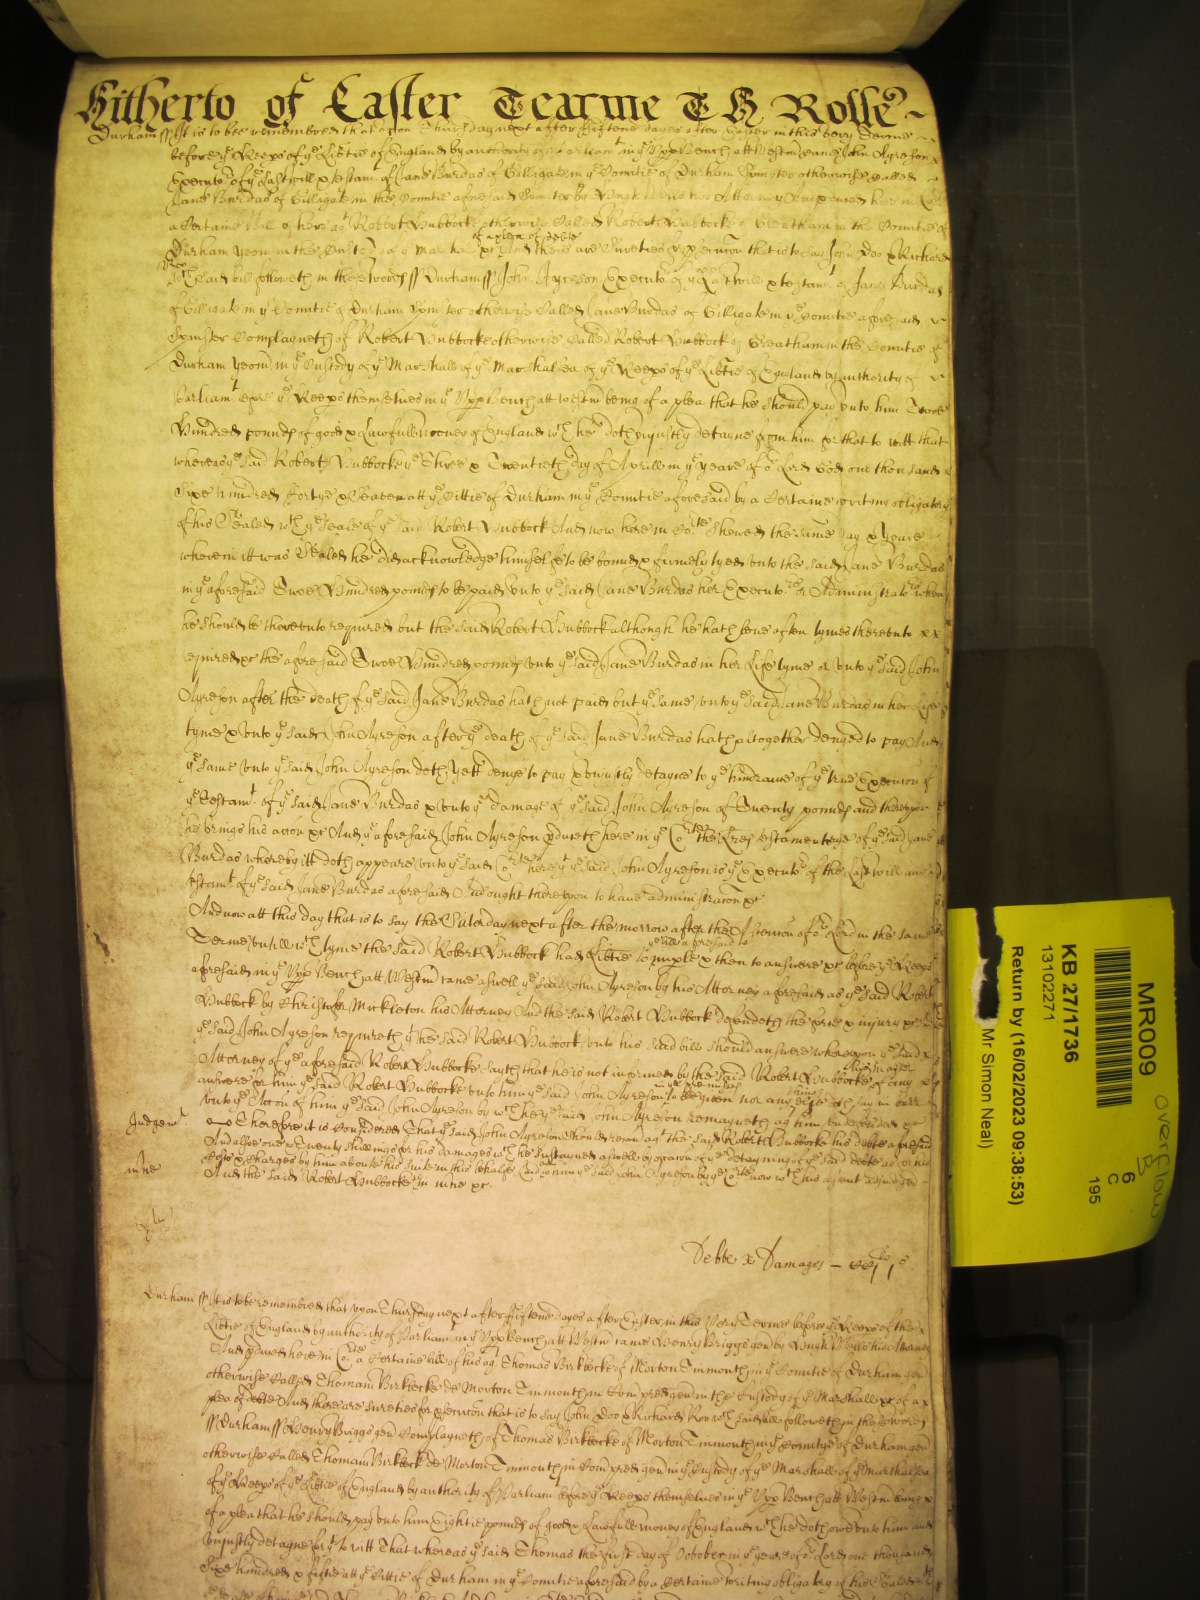 Hitherto of Easter Tearme T H Rosse
Durham ss It is to bee remembred that upon Thursday next after fifteene dayes after Easter in this very Terme
before ye Keeps of ye Libtie of England by authority of Parliamt in ye Upp Bench att Westm came John Ayreson
Executor of ye Last will & testamt of Jane Burdas of Gilligate in ye Countie of Durham Spinster otherwise Called
Jane Burdas of Gilligate in the Countie aforesaid Spinster by his Attorney And produced here in Cort
a Certaine Bill of hers agt Robert Hubbocke otherwise Called Robert Hubbocke of Greatham in the Countie of
of a plea of debte
Durham yeom in the Custody of ye Marshall &c And there are Sureties for prosecution that is to say John Doo & Richard
Roo wch said bill followeth in these words ss Durham ss John Ayreson Executor of ye Last will & testamt of Jane Burdas
of Gilligate in ye Countie of Durham Spinster otherwise Called Jane Burdas of Gilligate in ye Countie aforesaid
Spinster Complayneth of Robert Hubbocke otherwise Called Robert Hubbocke of Greatham in the Countie of
Durham yeom in ye Custody of ye Marshall of ye Marshalsea of ye Keeps of ye Libtie of England by authority of
Parliamt before ye Keeps themselves in ye Upp Bench att Westm being of a plea that he should pay unto him Twoe
Hundred pounds of good & Lawfull money of England wch he doth unjustly detayne from him for that to witt that
whereas ye said Robert Hubbocke ye Three & Twentieth day of Aprill in ye yeare of or Lord God one thousand
Sixe hundred Fortye & Seaven att ye Cittie of Durham in ye Countie aforesaid by a Certaine writing obligatory
of his Sealed wth ye Seale of ye said Robert Hubbock And now here in Corte shewed the same day & yeare
wherein itt was Sealed he did acknowledge himselfe to be bound & firmely tyed unto the said Jane Burdas
in ye aforesaid Twoe Hundred pounds to be paid unto ye said Jane Burdas her Executors or Administrators when
he should be thereunto required but the said Robert Hubbock although he hath bene often tymes thereunto
required &c the aforesaid Twoe Hundred pounds unto ye said Jane Burdas in her Life tyme or unto ye said John
Ayreson after the death of ye said Jane Burdas hath not paid but ye same unto ye said Jane Burdas in her Life
tyme & unto ye said John Ayreson after ye death of ye said Jane Burdas hath altogether denyed to pay And
ye same unto ye said John Ayreson doth yett denye to pay & unjustly detayne to ye hindrance of ye true Execucon of
ye Testamt of ye said Jane Burdas & unto ye damage of ye said John Ayreson of Twenty pounds and thereupon
he brings his accon &c And ye aforesaid John Ayreson pduceth here in ye Corte the Lres testamentarye of ye said Jane
Burdas whereby itt doth appeare unto ye said Corte here yt ye said John Ayreson is ye Executor of the Last will and
testamt of ye said Jane Burdas aforesaid And ought thereupon to have administracon &c
And now att this day that is to say the Saturday next after the morrow after the Ascention of or Lord in the same
Terme untill wch tyme the said Robert Hubbock had Libtie to imple & then to answere &c before ye Keeps
ye bill aforesaid to
aforesaid in ye Upp Bench att Westm came aswell ye said John Ayreson by his Attorney aforesaid as ye said Robert
Hubbock by Christofer Mickleton his Attorney And the said Robert Hubbock defendeth the force & injury &c
ye said John Ayreson requireth yt the said Robert Hubbock unto his said bill should answere whereupon ye said
Attorney of ye aforesaid Robert Hubbocke sayth that he is not informed by the said Robert Hubbocke of any
his master
answere for him ye said Robert Hubbocke unto him ye said John Ayreson to be given nor any
in ye premisses
unto ye Accon of him ye said John Ayreson by wch he ye said John Ayreson remayneth agt him undefended &c
Judgemt
Therefore it is Considered That ye said John Ayreson should recover agt the said Robert Hubbocke his debte aforesaid
And alsoe one & Twenty shillings for his damages wch he sustayned aswell by occasion of ye detayning of ye said debte as for his
Costs & Charges by him about his suite in this behalfe
in m'ie
And the said Robert Hubbocke in m'ie &c
Debte & Damages
Durham ss It is to be remembred that upon Thursday next after fifteene dayes after Easter in this very Terme before ye Keeps of the
Libtie of England by authority of Parliamt in ye Upp Bench att Westm came Henry Briggs gen by his Attorney
And pduced here in Corte a Certaine bill of his agt Thomas Birkbecke of Morton Tinmouth in ye Countie of Durham gen
otherwise Called Thomam Birkbecke de Morton Tinmouth in Com pred gen in the Custody of ye Marshall &c of a
plea of debte And there are sureties for prosecucon that is to say John Doo & Richard Roo wch said bill followeth in these words
ss Durham ss Henry Briggs gen Complayneth of Thomas Birkbecke of Morton Tinmouth in ye Countye of Durham gen
otherwise Called Thomam Birkbeck de Morton Tinmouth in Com pred gen in ye Custody of ye Marshall of ye Marshalsea
of ye Keeps of ye Libtie of England by authority of Parliamt before ye Keeps themselves in ye Upp Bench att Westm being
of a plea that he should pay unto him Eightie pounds of good & Lawfull money of England wch he doth owe unto him and
unjustly detayne for yt to witt That whereas ye said Thomas the first day of October in ye yeare of or Lord one thousand
Sixe hundred & fiftie att ye Cittie of Durham in ye Countie aforesaid by a Certaine writing obligatory of his Sealed
MR009
KB 27/1736
13102271
Return by (16/02/2023 09:38:53)
Mr. Simon Neal)
6
C
195
Overflow
B